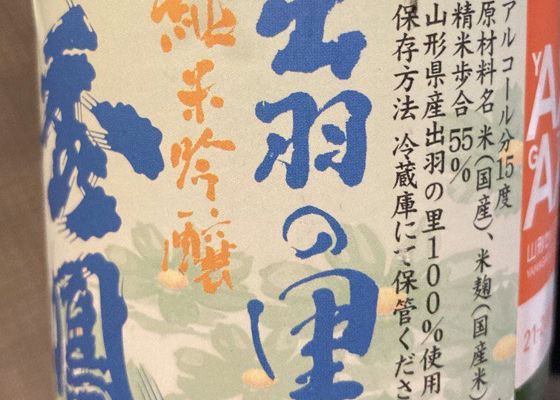 アルコール分15度
原材料名 米(国産)、米麹(国産米)
精米歩合 55%
山形県産出羽の里100%使用
保存方法 冷蔵庫にて保管くださ
出羽の里
純米吟醸
YA
GA
山形
YAMAG
21-